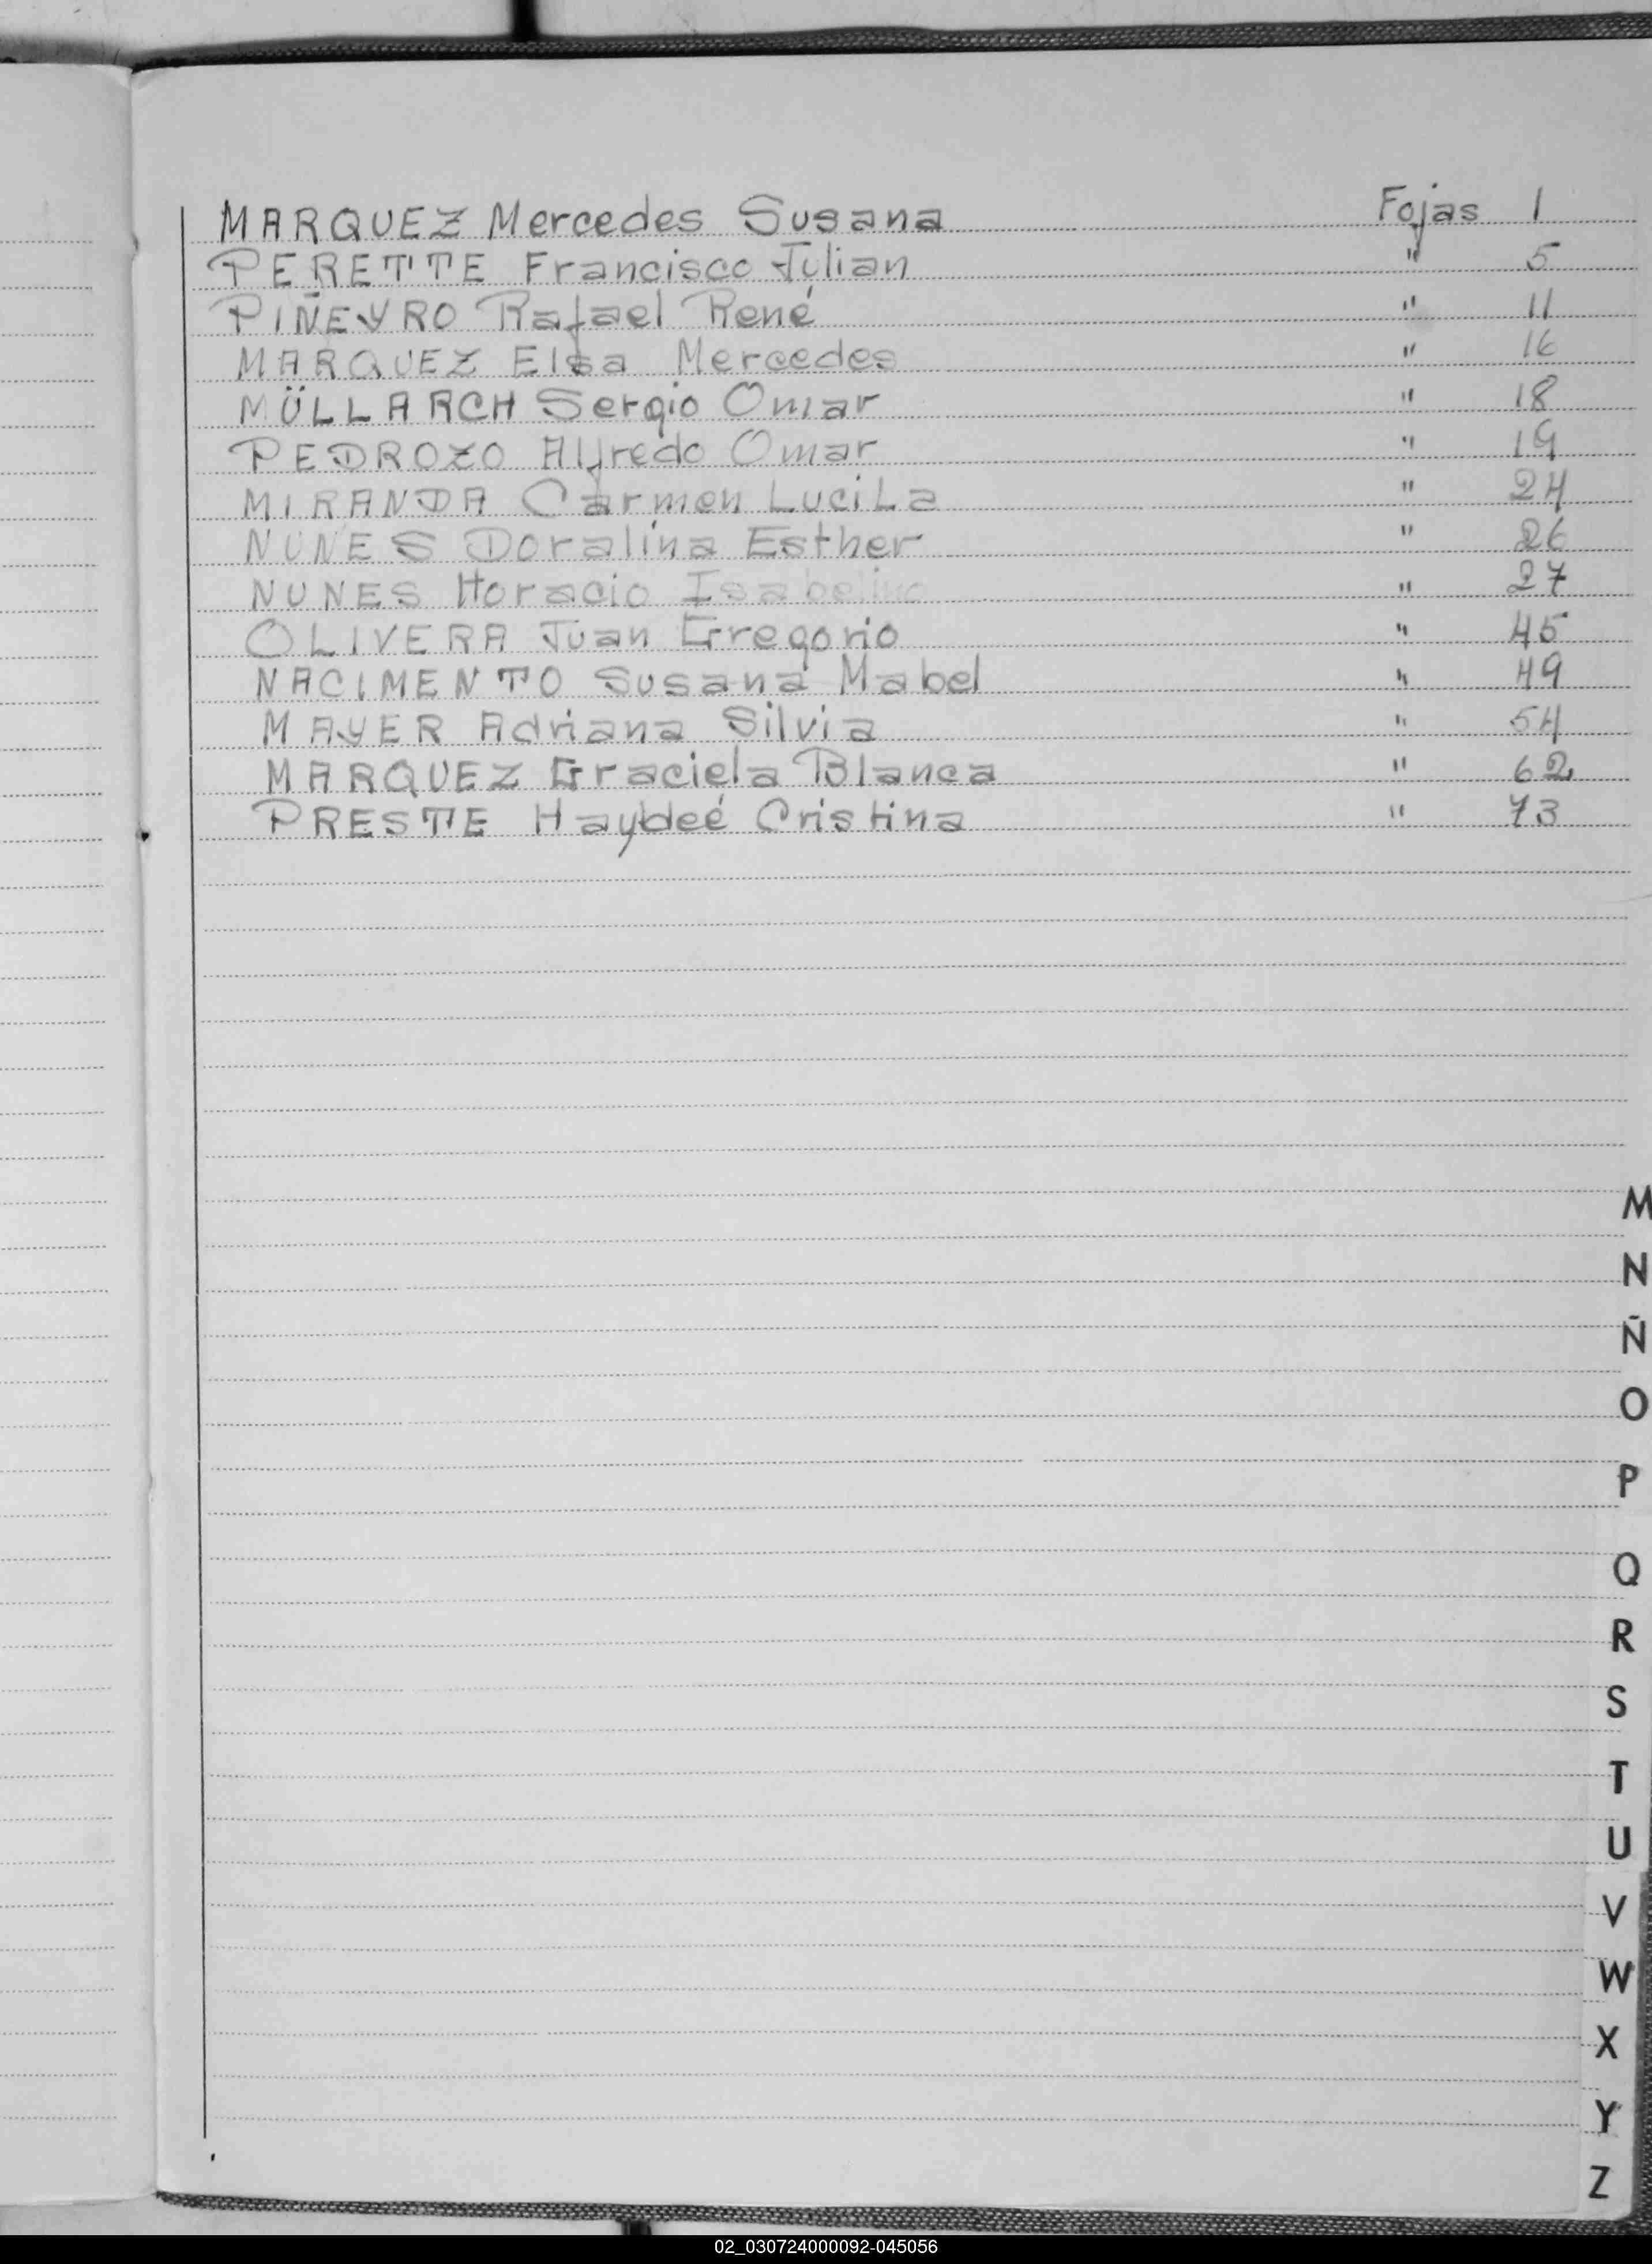 MARQUEZ Mercedes Susana Fojas 1
PERETTE Francisco Julian " 5
PIÑEYRO Rafael René " 11
MARQUEZ Elsa Mercedes " 16
MÜLLARCH Sergio Omar " 18
PEDROZO Alfredo Omar " 19
MIRANDA Carmen Lucila " 24
NUNES Doralina Esther " 26
NUNES Horacio Isabelino " 27
OLIVERA Juan Gregorio " 45
NACIMENTO Susana Mabel " 49
MAYER Adriana Silvia " 54
MARQUEZ Graciela Blanca " 62
PRESTE Haydeé Cristina " 73
M
N
Ñ
O
P
Q
R
S
T
U
V
W
X
Y
Z
02_030724000092-045056